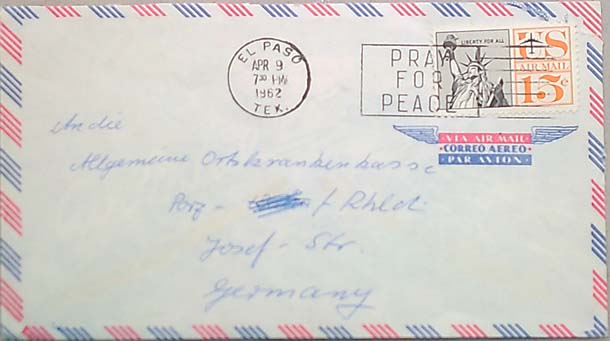 EL PASO
APR 9
7 30 PM
1962
TEX.
PRAY
FOR
PEACE
LIBERTY FOR ALL
US
AIR MAIL
15c
VIA AIR MAIL
CORREO AEREO
PAR AVION
An die
Allgemeine Ortskrankenkasse
Porz - / Rhld.
Josef - Str.
Germany